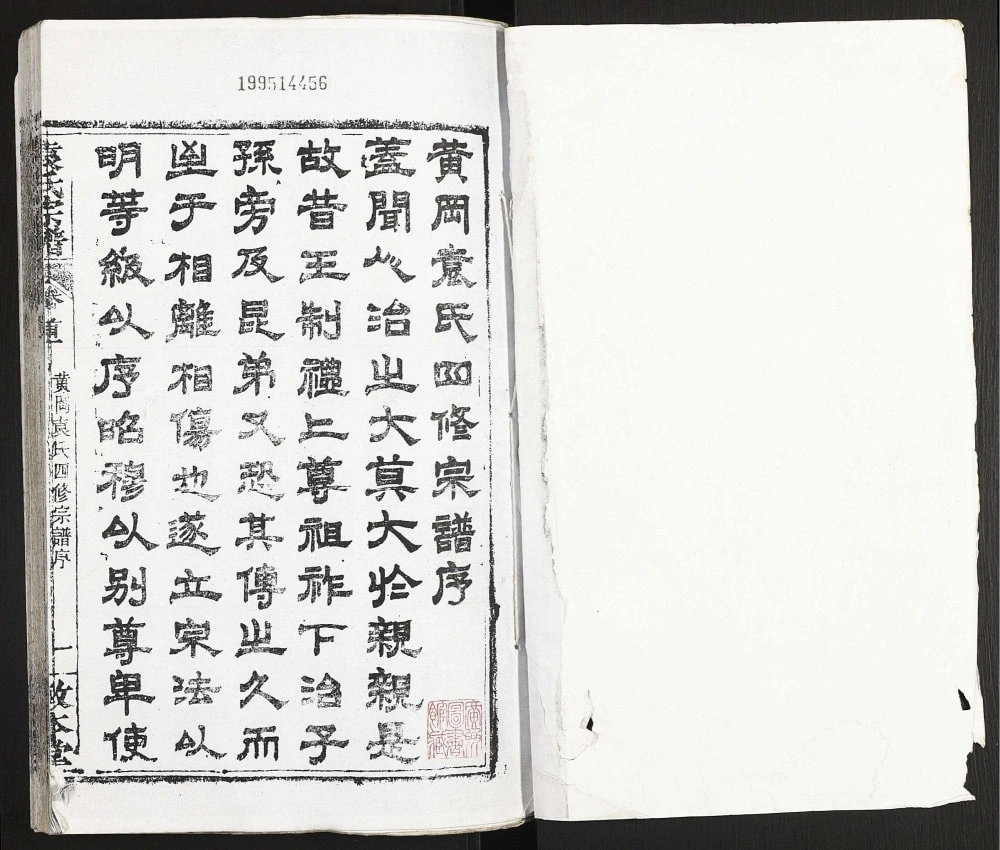 199514456
黃岡袁氏四修宗譜序
蓋聞人治之大莫大於親親是
故昔王制禮上尊祖祚下治子
孫旁及昆弟又恐其傳之久而
至于相離相傷也遂立宗法以
明等級以序昭穆以别尊卑使
袁氏宗譜 卷首 黃岡袁氏四修宗譜序 一 本堂